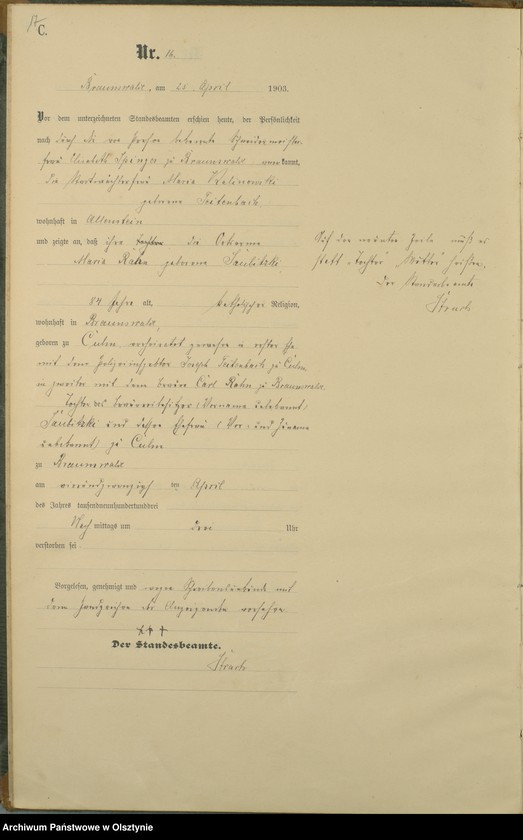 C.
Nr. 16
Braunswalde, am 25 April 1903.
Vor dem unterzeichneten Standesbeamten erschien heute, der Persönlichkeit
nach durch die von Person bekannte
frau Elisabeth zu Braunswalde anerkannt,
die Maria Kalinowski
geborene Tietenbach
wohnhaft in Allenstein
und zeigte an, daß ihre Tochter die
Maria Rahn geborene Saulitzki
84 Jahre alt, katholischer Religion,
wohnhaft in Braunswalde,
geboren zu Culm verheiratet gewesen in erster Ehe
mit dem Joseph Tietenbach zu Culm,
in zweiter mit dem Carl Rahn zu Braunswalde
Tochter des (Vorname unbekannt)
Saulitzki und dessen Ehefrau (Vor- und Zuname
unbekannt) zu Culm
zu Braunswalde
am vierundzwanzigsten den April
des Jahres tausendneunhundertunddrei
Nach mittags um drei Uhr
verstorben sei
Vorgelesen, genehmigt und wegen Schreibensunkunde mit
dem Handzeichen der Anzeigenden versehen
+++
Der Standesbeamte.
Auf der neunten Zeile muß es
statt „Tochter" „Mutter" heißen.
Der Standesbeamte
Archiwum Państwowe w Olsztynie